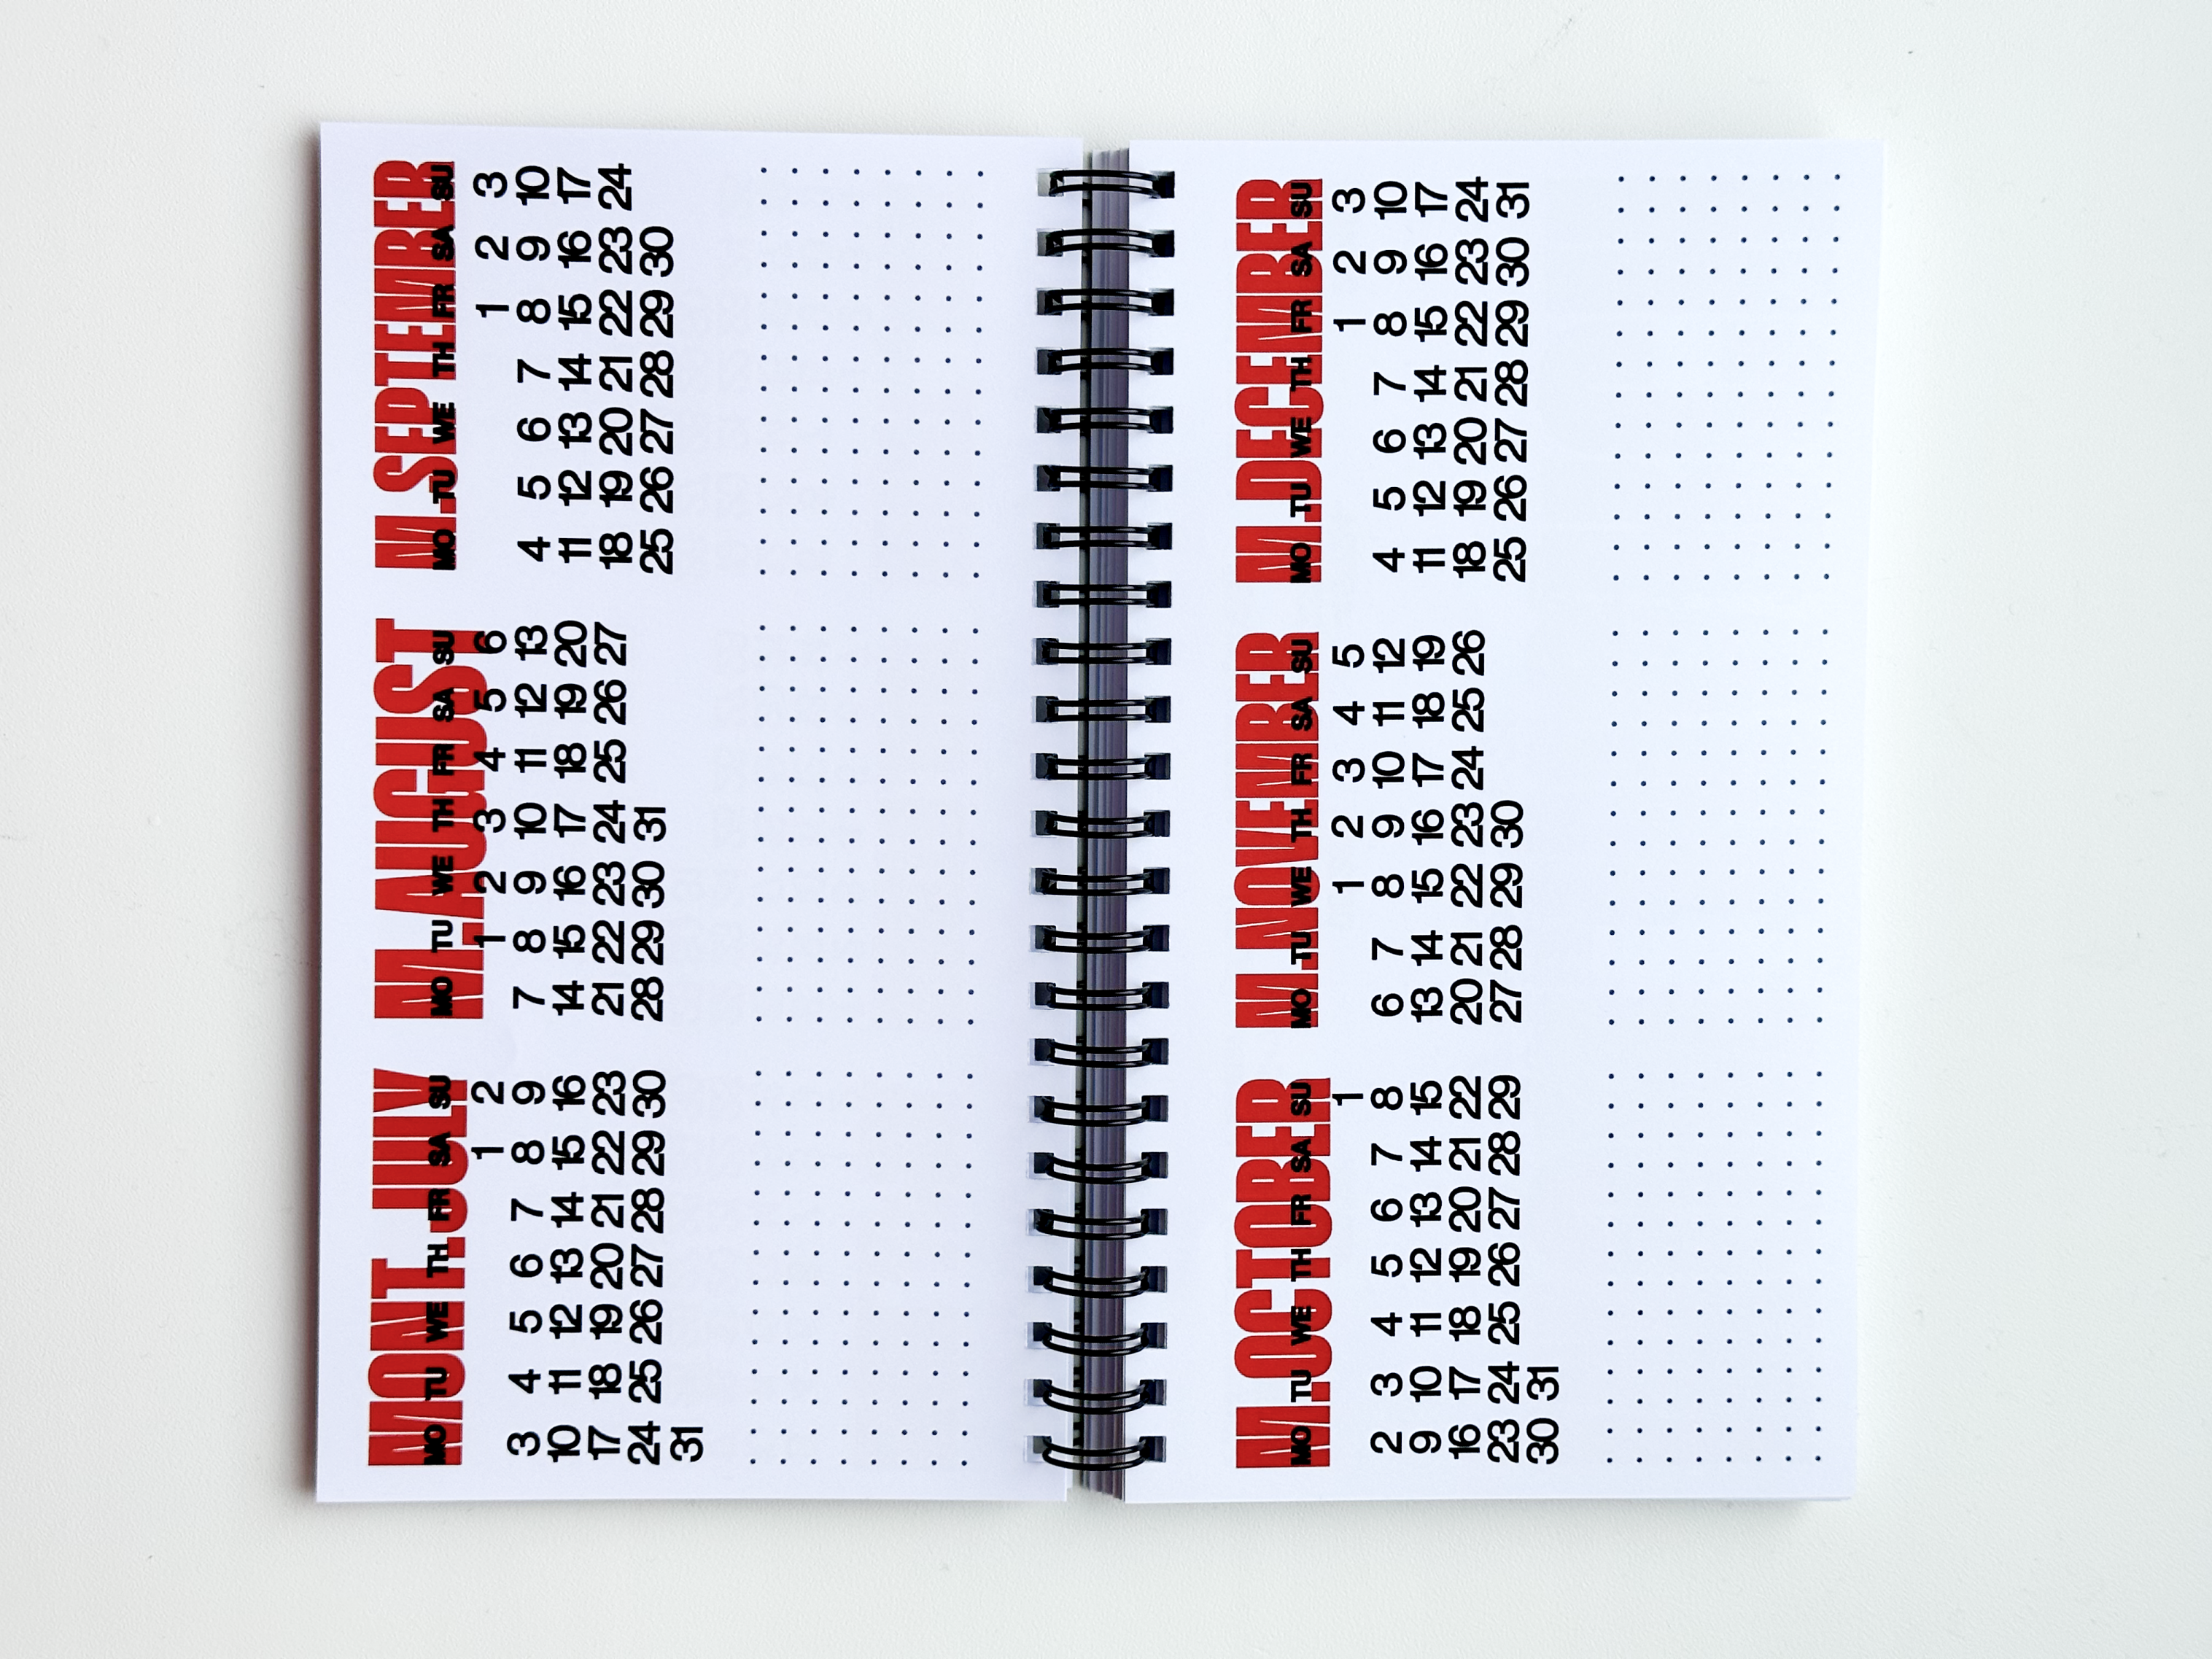 MONT.JULY
MO TU WE TH FR SA SU
1 2
3 4 5 6 7 8 9
10 11 12 13 14 15 16
17 18 19 20 21 22 23
24 25 26 27 28 29 30
31
M.AUGUST
MO TU WE TH FR SA SU
1 2 3 4 5 6
7 8 9 10 11 12 13
14 15 16 17 18 19 20
21 22 23 24 25 26 27
28 29 30 31
M.SEPTEMBER
MO TU WE TH FR SA SU
1 2 3
4 5 6 7 8 9 10
11 12 13 14 15 16 17
18 19 20 21 22 23 24
25 26 27 28 29 30
M.OCTOBER
MO TU WE TH FR SA SU
1
2 3 4 5 6 7 8
9 10 11 12 13 14 15
16 17 18 19 20 21 22
23 24 25 26 27 28 29
30 31
M.NOVEMBER
MO TU WE TH FR SA SU
1 2 3 4 5
6 7 8 9 10 11 12
13 14 15 16 17 18 19
20 21 22 23 24 25 26
27 28 29 30
M.DECEMBER
MO TU WE TH FR SA SU
1 2 3
4 5 6 7 8 9 10
11 12 13 14 15 16 17
18 19 20 21 22 23 24
25 26 27 28 29 30 31